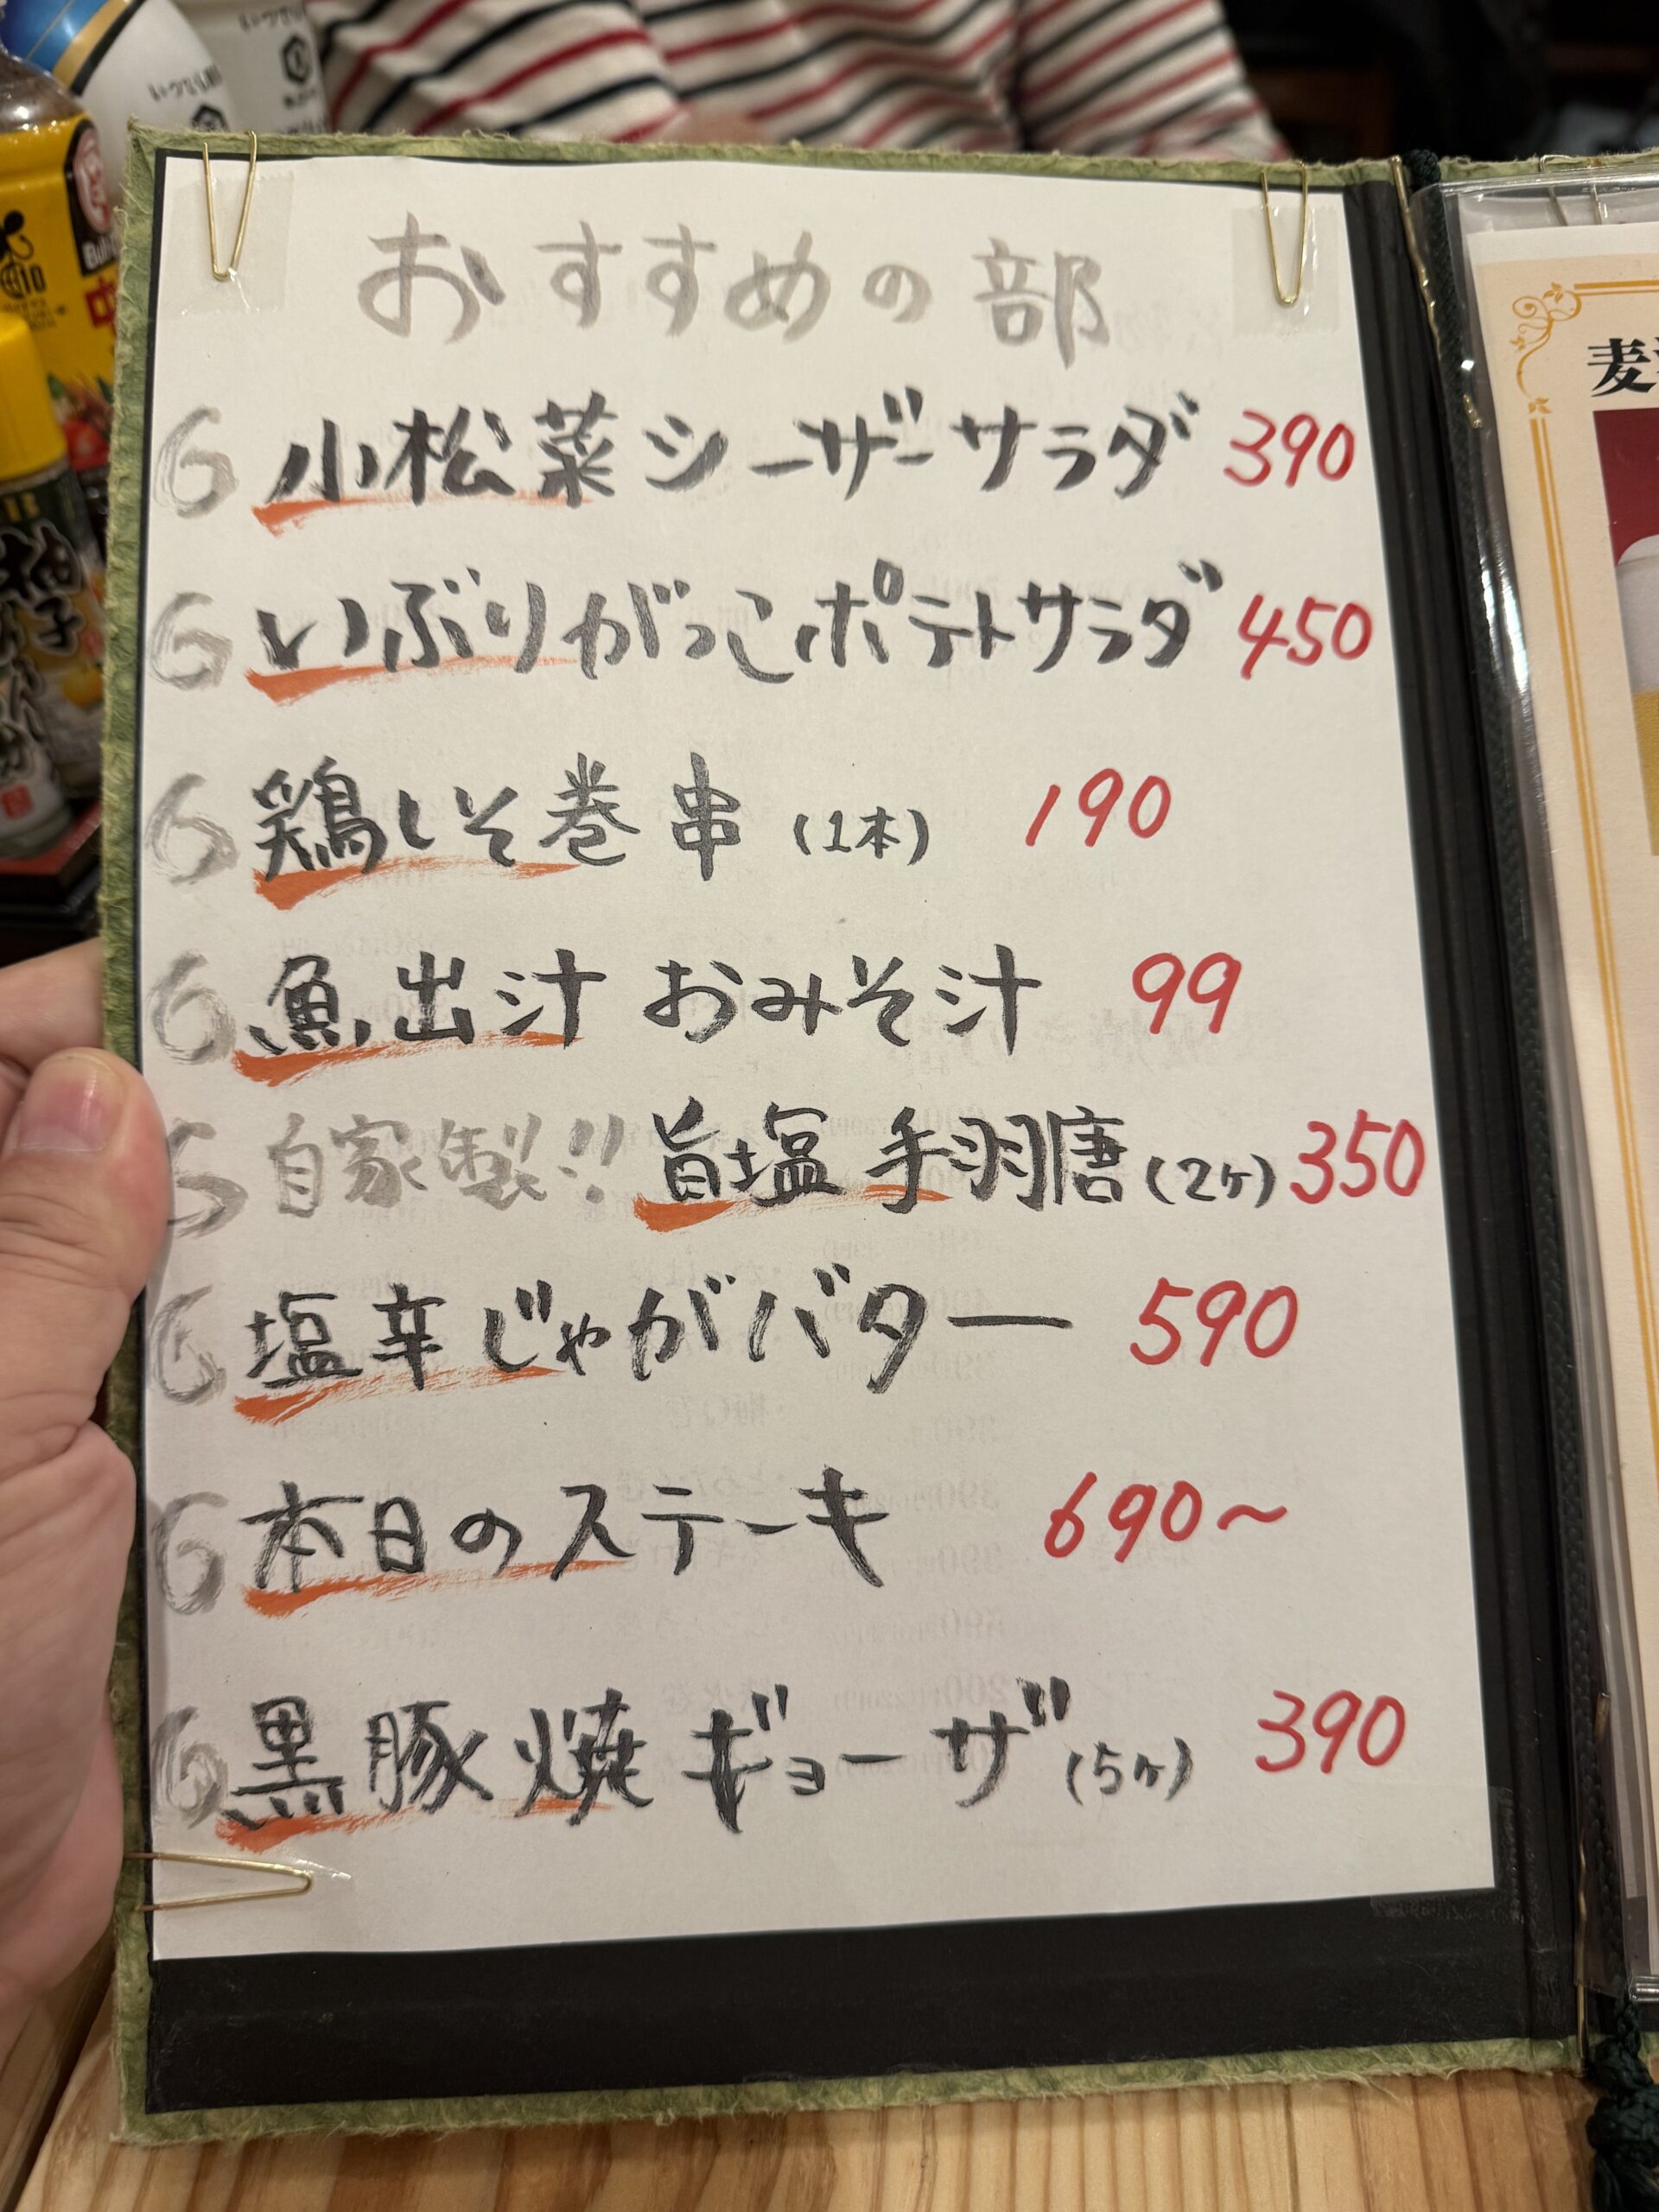 おすすめの部
G 小松菜シーザーサラダ 390
G いぶりがっこポテトサラダ 450
G 鶏しそ巻串 (1本) 190
G 魚出汁 おみそ汁 99
G 自家製!! 旨塩 手羽唐 (2ヶ) 350
G 塩辛じゃがバター 590
G 本日のステーキ 690~
G 黒豚焼ギョーザ (5ヶ) 390
麦
柚子